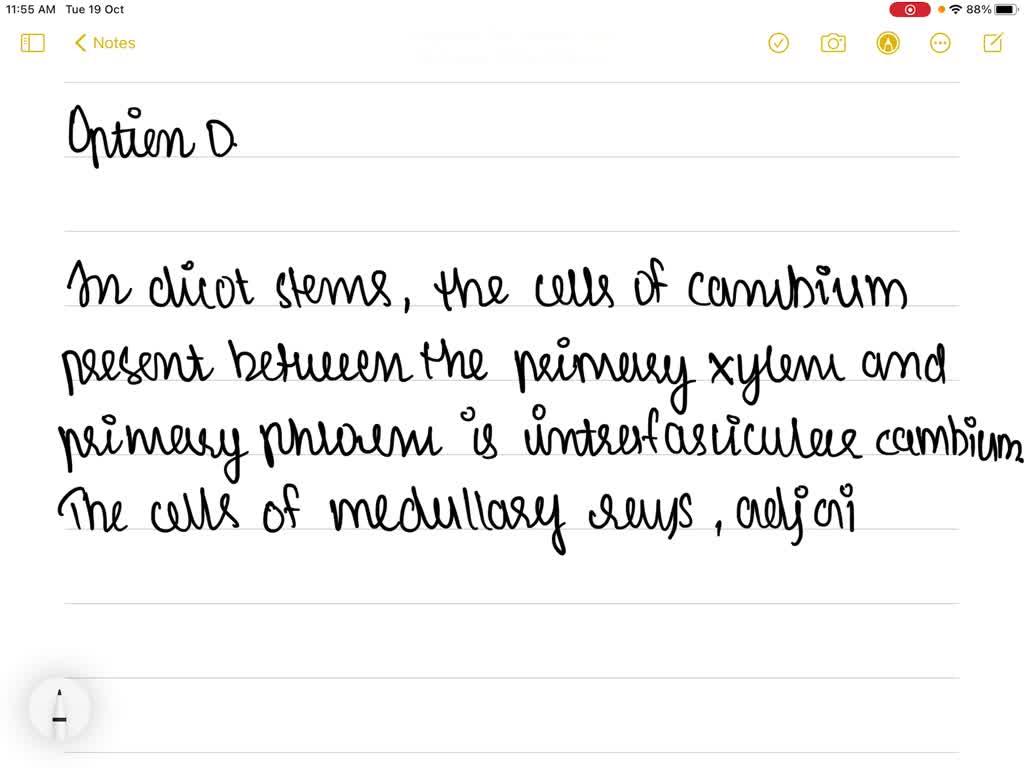 11:55 AM Tue 19 Oct 88%
Notes
Option D.
In dicot stems, the cells of cambium
present between the primary xylem and
primary phloem is intrafasicular cambium.
The cells of medullary rays, adjoi